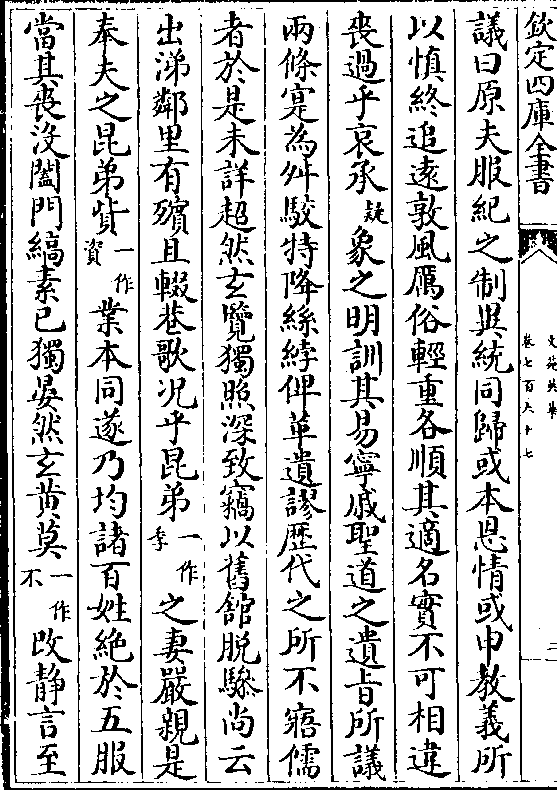 欽定四庫全書
文苑英華
卷七百六十七
三
議曰原夫服紀之制異統同歸或本恩情或申教義所
以慎終追逺敦風厲俗輕重各順其適名實不可相違
喪過乎哀承疑象之明訓其易寧戚聖道之遺㫖所議
兩條寔為舛駮特降絲綍俾革遺謬歴代之所不寤儒
者於是未詳超然玄覽獨照深致竊以舊舘脱驂尚云
出涕鄰里有殯且輟巷歌况乎昆弟一作季之妻嚴親是
奉夫之昆弟貲一作資業本同遂乃均諸百姓絶於五服
當其喪没闔門縞素已獨晏然玄黄莫一作不改静言至